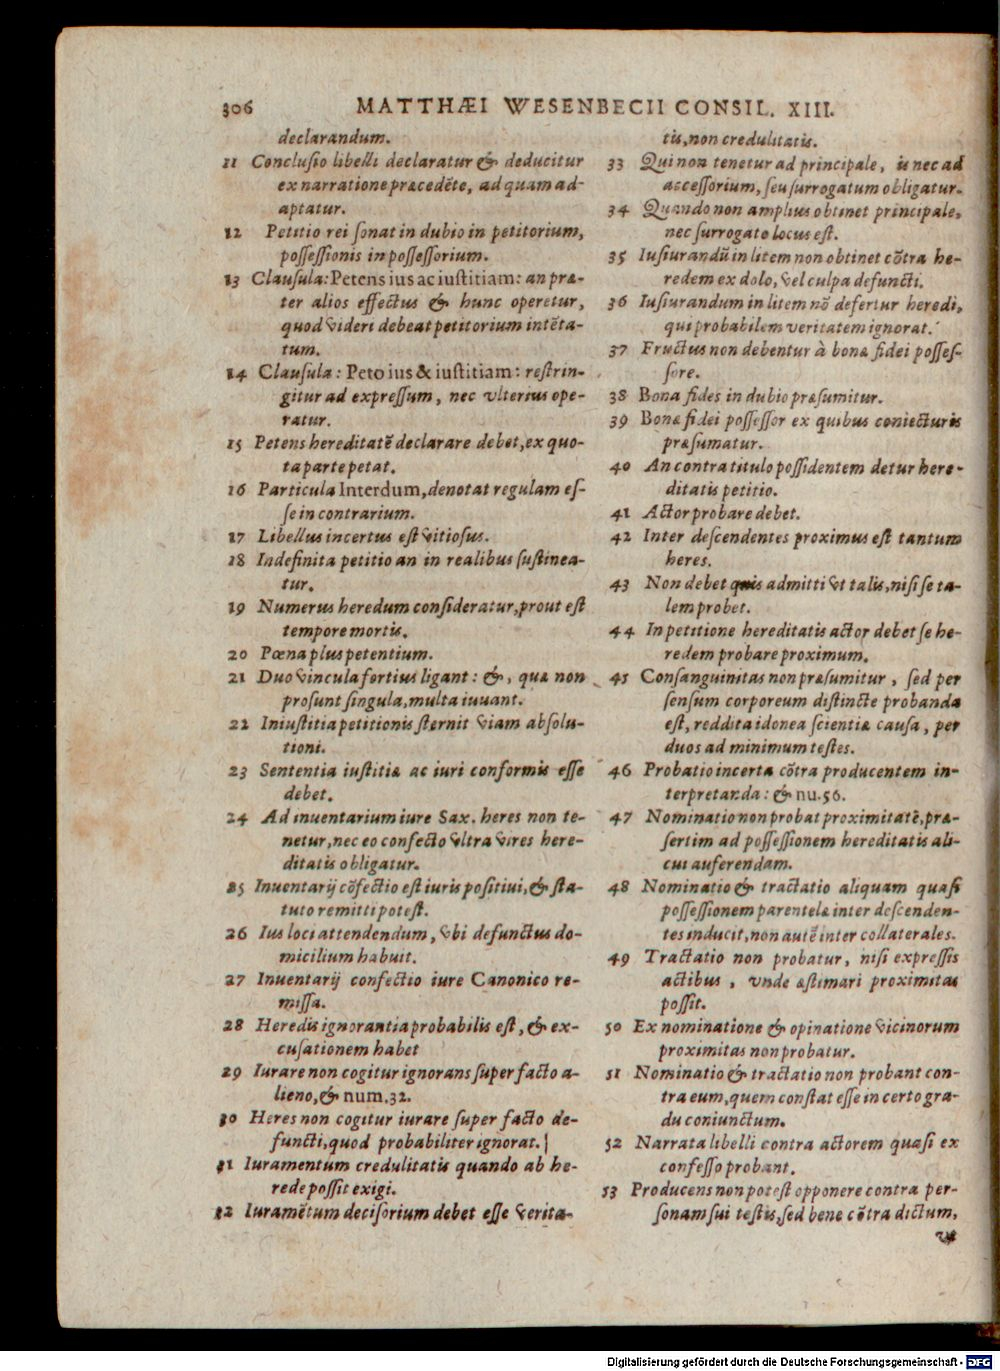 306 MATTHÆI WESENBECII CONSIL. XIII.
declarandum.
11 Conclusio libelli declaratur & deducitur
ex narratione præcedēte, ad quam ad-
aptatur.
12 Petitio rei sonat in dubio in petitorium,
possessionis in possessorium.
13 Clausula: Petens ius ac iustitiam: an præ-
ter alios effectus & hunc operetur,
quod videri debeat petitorium intēta-
tum.
14 Clausula: Peto ius & iustitiam: restrin-
gitur ad expressum, nec vlterius ope-
ratur.
15 Petens hereditatē declarare debet, ex quo-
ta parte petat.
16 Particula Interdum, denotat regulam es-
se in contrarium.
17 Libellus incertus est vitiosus.
18 Indefinita petitio an in realibus sustinea-
tur.
19 Numerus heredum consideratur, prout est
tempore mortis.
20 Pœna plus petentium.
21 Duo vincula fortius ligant: &, quæ non
prosunt singula, multa iuuant.
22 Iniustitia petitionis sternit viam absolu-
tioni.
23 Sententia iustitiæ ac iuri conformis esse
debet.
24 Ad inuentarium iure Sax. heres non te-
netur, nec eo confecto vltra vires here-
ditatis obligatur.
25 Inuentarij cōfectio est iuris positiui, & sta-
tuto remitti potest.
26 Ius loci attendendum, vbi defunctus do-
micilium habuit.
27 Inuentarij confectio iure Canonico re-
missa.
28 Heredis ignorantia probabilis est, & ex-
cusationem habet
29 Iurare non cogitur ignorans super facto a-
lieno, & num. 32.
30 Heres non cogitur iurare super facto de-
functi, quod probabiliter ignorat.
31 Iuramentum credulitatis quando ab he-
rede possit exigi.
32 Iuramētum decisorium debet esse verita-
tis, non credulitatis.
33 Qui non tenetur ad principale, is nec ad
accessorium, seu surrogatum obligatur.
34 Quando non amplius obtinet principale,
nec surrogato locus est.
35 Iusiurandū in litem non obtinet cōtra he-
redem ex dolo, vel culpa defuncti.
36 Iusiurandum in litem nō defertur heredi,
qui probabilem veritatem ignorat.
37 Fructus non debentur à bonæ fidei posses-
sore.
38 Bona fides in dubio præsumitur.
39 Bonæ fidei possessor ex quibus coniecturis
præsumatur.
40 An contra titulo possidentem detur here-
ditatis petitio.
41 Actor probare debet.
42 Inter descendentes proximus est tantum
heres.
43 Non debet quis admitti vt talis, nisi se ta-
lem probet.
44 In petitione hereditatis actor debet se he-
redem probare proximum.
45 Consanguinitas non præsumitur, sed per
sensum corporeum distincte probanda
est, reddita idonea scientiæ causa, per
duos ad minimum testes.
46 Probatio incerta cōtra producentem in-
terpretanda: & nu. 56.
47 Nominatio non probat proximitatē, præ-
sertim ad possessionem hereditatis ali-
cui auferendam.
48 Nominatio & tractatio aliquam quasi
possessionem parentelæ inter descenden-
tes inducit, non autē inter collaterales.
49 Tractatio non probatur, nisi expressis
actibus, vnde æstimari proximitas
possit.
50 Ex nominatione & opinatione vicinorum
proximitas non probatur.
51 Nominatio & tractatio non probant con-
tra eum, quem constat esse in certo gra-
du coniunctum.
52 Narrata libelli contra actorem quasi ex
confesso probant.
53 Producens non potest opponere contra per-
sonam sui testis, sed bene cōtra dictum,
vt
Digitalisierung gefördert durch die Deutsche Forschungsgemeinschaft - DFG